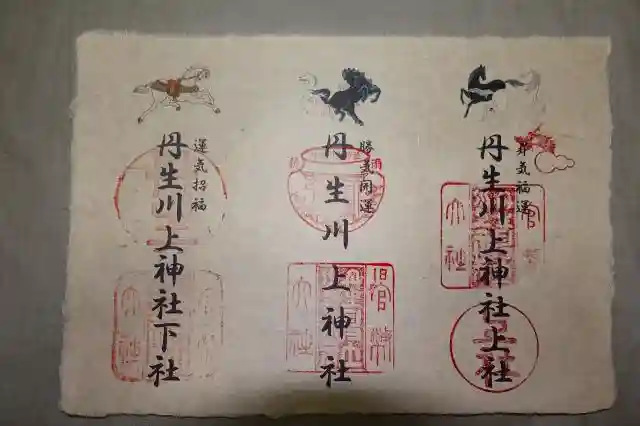 昇気福運
丹生川上神社上社
官幣
大社
勝気開運
丹生川上神社
旧官幣
大社
運気招福
丹生川上神社下社
大社